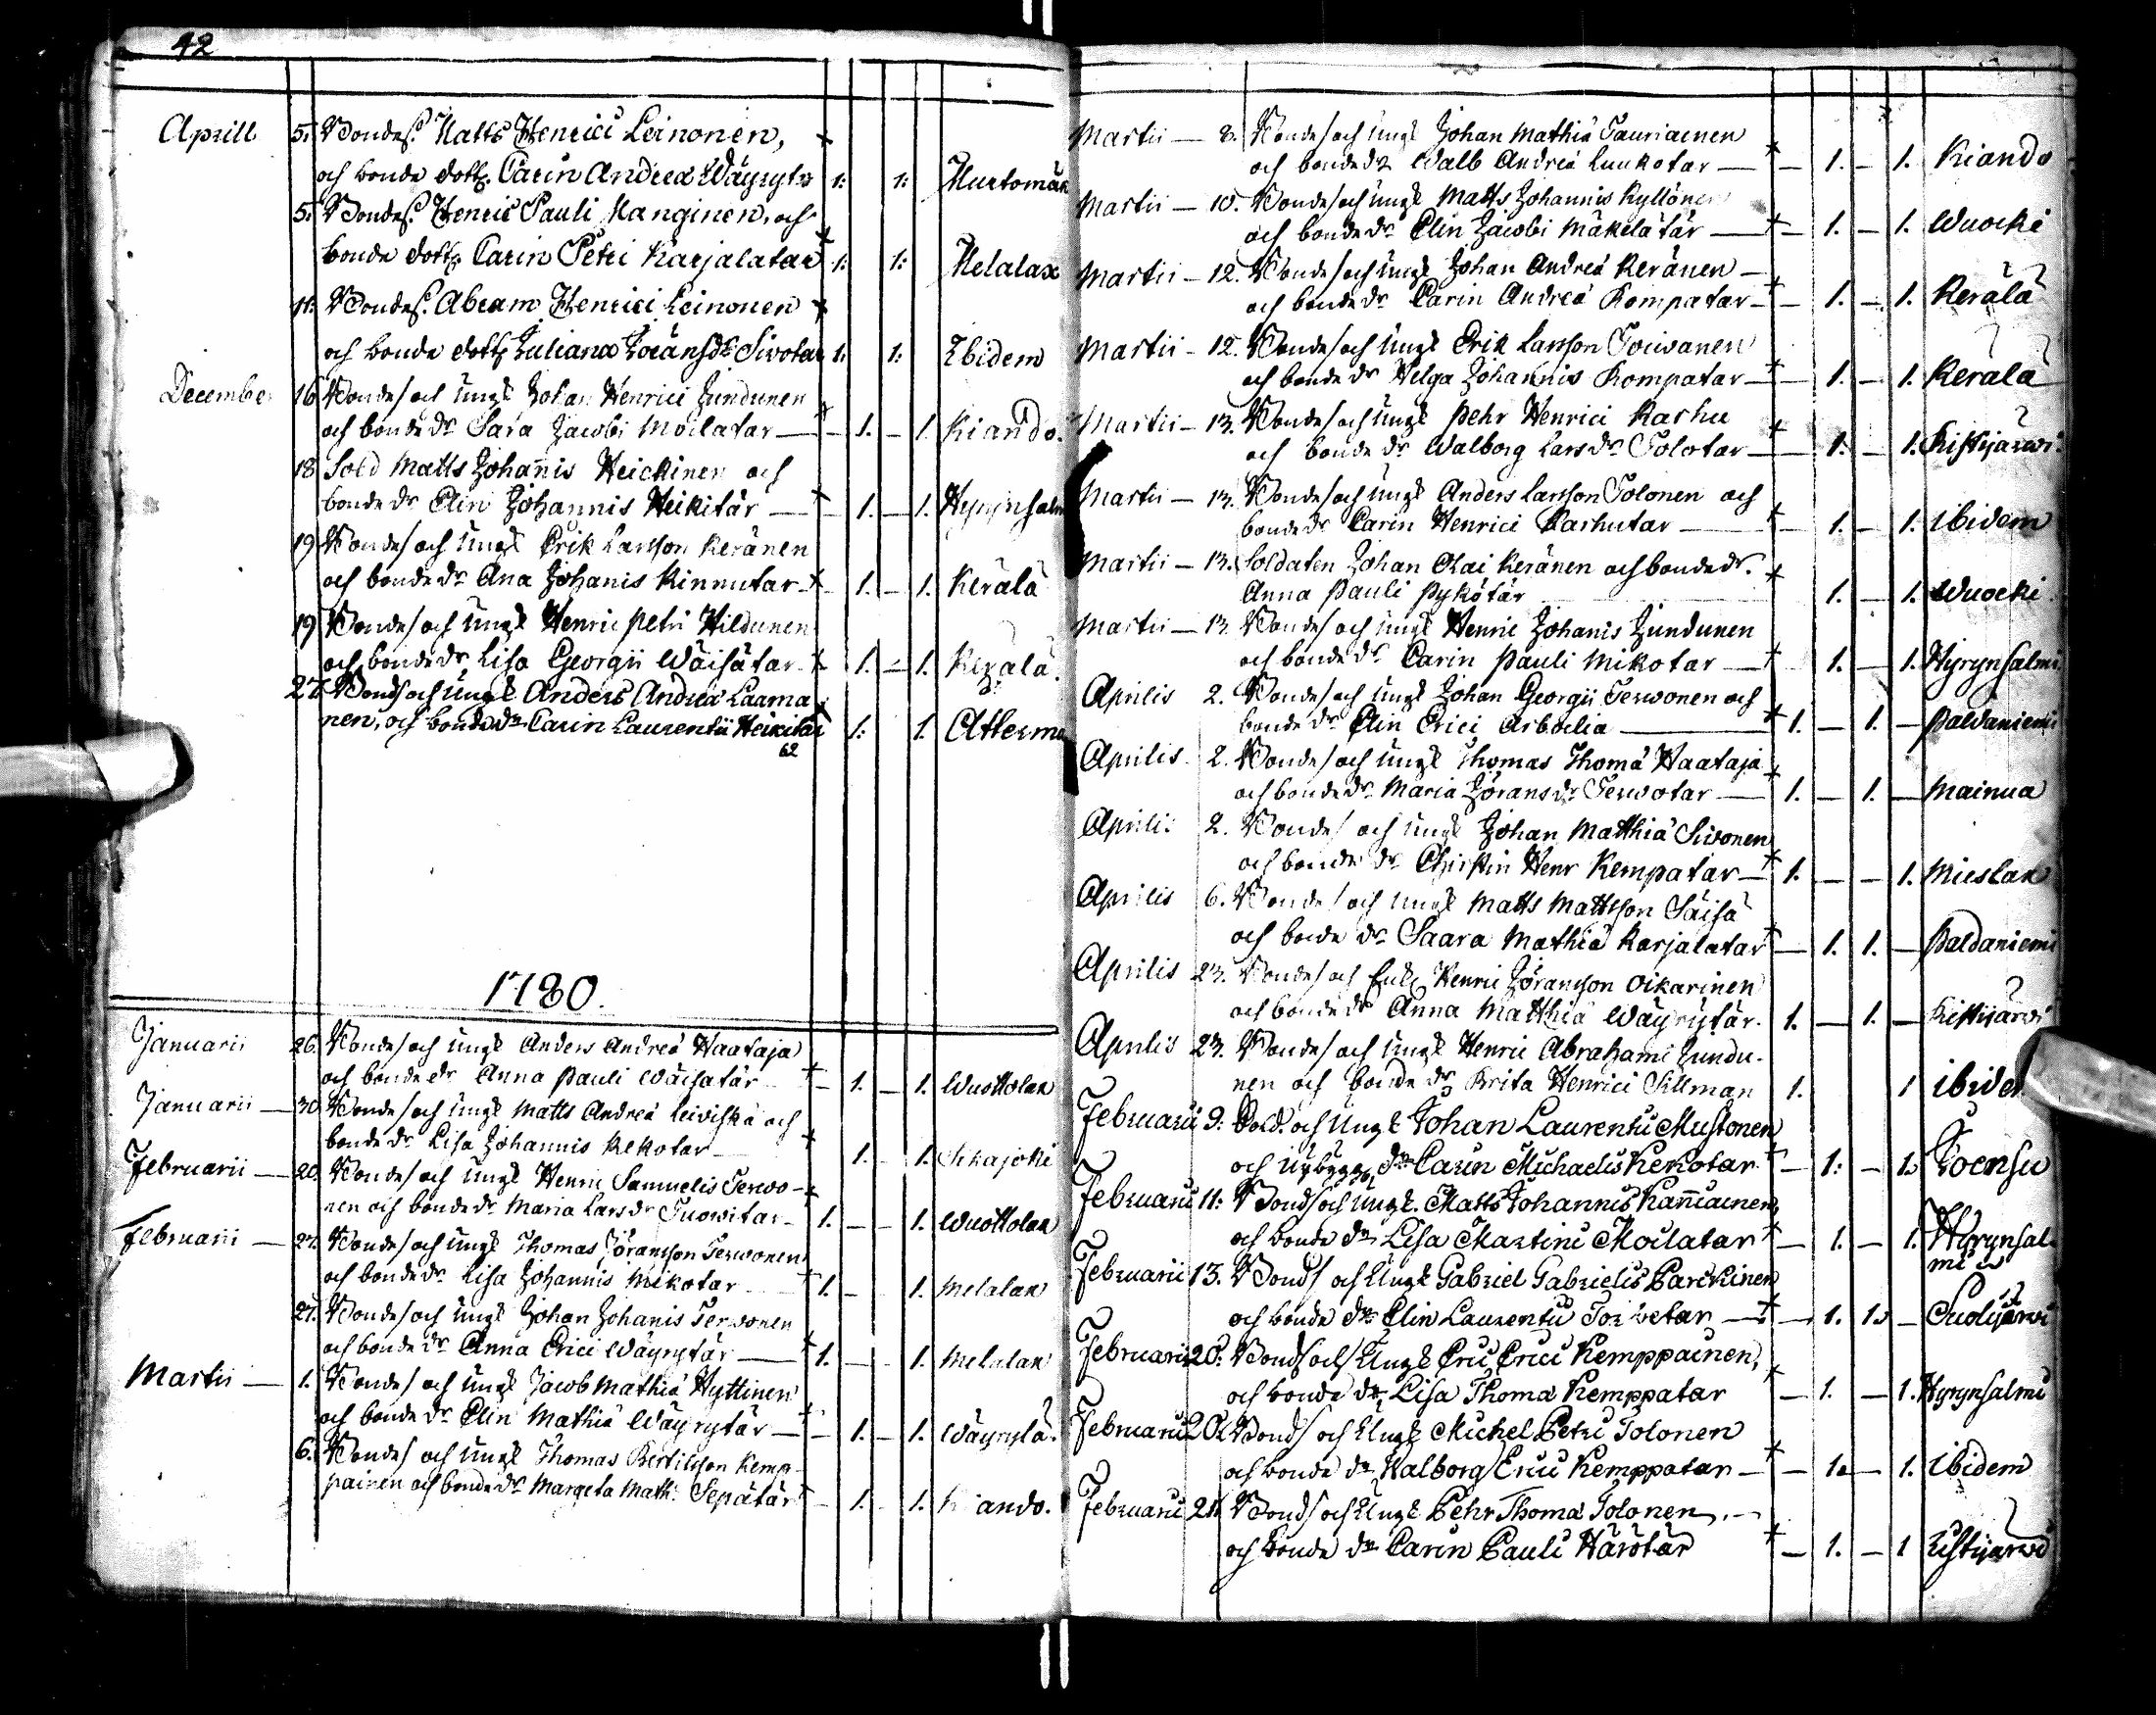 42
Aprill 5. Bondes. Matts Henrici Leinonen,
och bonde dott. Carin Andreæ Wäyryt. 1: 1: Murtomäk
5. Bondes. Henric Pauli Kanginen, och
bonde dott. Carin Petri Karjalatar 1: 1: Melalax
11: Bondes. Abram Henrici Leinonen
och bonde dott. Juliana Jöransdr. Sivotar 1: 1: Ibidem
December 16 Bondes och Ungk Johan Henrici Jundunen
och bonde dr Sara Jacobi Moilatar — 1. — 1. Kiando.
18 Sold Matts Johannis Heickinen och
bonde dr Elin Johannis Heikitär — 1. — 1. Hyrynsalm
19 Bondes och Ungk Erik Larsson Keränen
och bonde dr Ana Johanis Kinnutar — 1. — 1. Kerälä
19 Bondes och Ungk Henric Petri Hildunen
och bonde dr Lisa Georgii Wäisätar — 1. — 1. Kerälä.
27. Bonds och Ungk Anders Andreæ Laama
nen, och bonde dr Carin Laurentii Heikitär 1: 1.
62
1780.
Januarii 26. Bondes och Ungk Anders Andreæ Haataja
och bonde dr Anna Pauli Wäisätär — 1. — 1. Wuottolax
Januarii — 30 Bondes och Ungk Matts Andreæ Leiviskä och
bonde dr Lisa Johannis Kekotar — 1. — 1. Sikajoki
Februarii — 20. Bondes och Ungk Henric Samuelis Terwo-
nen och bonde dr Maria Lars dr Tuowitar — 1. — — 1. Wuottolax
Februarii — 27. Bondes och Ungk Thomas Jöransson Terwonen
och bonde dr Lisa Johannis Mikotar 1. — 1. Melalax
27. Bondes och Ungk Johan Johanis Terwonen
och bonde dr Anna Erici Wäyrytär — 1. — 1. Melalax
Martii — 1. Bondes och Ungk Jacob Mathiæ Hyttinen
och bonde dr Elin Mathiæ Wäyrytär — 1. — 1. Wäyrylä.
6. Bondes och Ungk Thomas Bertilsson Kemp-
painen och bonde dr Margeta Math: Sepätär — 1. — 1. Kiando.
Martii — 8. Bondes och Ungk Johan Mathiæ Tauriainen
och bonde dr Walb Andreæ Luukotar — 1. — 1. Kiando
Martii — 10. Bondes och Ungk Matts Johannis Kyllönen
och bonde dr Elin Jacobi Mäkelätär — 1. — 1. Wuocki
Martii — 12. Bondes och Ungk Johan Andreæ Keränen —
och bonde dr Carin Andreæ Kompatar — 1. — 1. Kerälä
Martii — 12. Bondes och Ungk Erik Larsson Toiwanen
och bonde dr Helga Johannis Kompatar — 1. — 1. Kerälä
Martii — 13. Bondes och Ungk Pehr Henrici Karhu
och bonde dr Walborg Lars dr Tolotar — 1. — 1. Kistijärwi.
Martii — 13. Bondes och Ungk Anders Larsson Tolonen och
bonde dr Carin Henrici Karhutar — 1. — 1. Ibidem
Martii — 13. Soldaten Johan Olai Keränen och bonde dr.
Anna Pauli Pykötär 1. — 1. Wuocki
Martii — 13. Bondes och Ungk Henric Johanis Jundunen
och bonde dr Carin Pauli Mikotar — 1. — 1. Hyrynsalmi
Aprilis 2. Bondes och Ungk Johan Georgii Terwonen och
bonde dr Elin Erici Arbelia — 1. — 1. — Paldaniemi
Aprilis 2. Bondes och Ungk Thomas Thomæ Haataja
och bonde dr Maria Jörans dr Terwotar — 1. — 1. — Mainua
Aprilis 2. Bondes och Ungk Johan Matthiæ Sivonen
och bonde dr Christin Henr Kempatar — 1. — — 1. Mieslax
Aprilis 6. Bondes och Ungk Matts Mattsson Säisä
och bonde dr Saara Mathiæ Karjalatar — 1. 1. — Paldaniemi
Aprilis 23. Bondes och Enk Henric Jöransson Oikarinen
och bonde dr Anna Matthiæ Wäyrytär. 1. — 1. — Kistijärwi
Aprilis 23. Bondes och Ungk Henric Abrahami Jundu-
nen och bonde dr Brita Henrici Sillman 1. 1 Ibidem
Februarii 9: Sold. och Ungk Johan Laurentii Mustonen
och Nybygg dr Carin Michaelis Kekotar. — 1: — 1. Joensu
Februarii 11: Bonds och Ungk. Matts Johannis Kanniainen,
och bonde dr Lisa Martini Moilatar — 1. — 1. Hyrynsal-
mi
Februarii 13. Bonds och Ungk Gabriel Gabrielis Parckinen
och bonde dr Elin Laurentii Toivetar — 1. 1. —
Februarii 20: Bonds och Ungk Eric Erici Kemppainen,
och bonde dr Lisa Thomæ Kemppatar — 1. — 1. Hyrynsalmi
Februarii 20. Bonds och Ungk Michel Petri Tolonen
och bonde dr Walborg Erici Kemppatar — 1. — 1. Ibidem
Februarii 21. Bonds och Ungk Pehr Thomæ Tolonen, —
och bonde dr Carin Pauli Härötär — 1. — 1 Ristijärwi